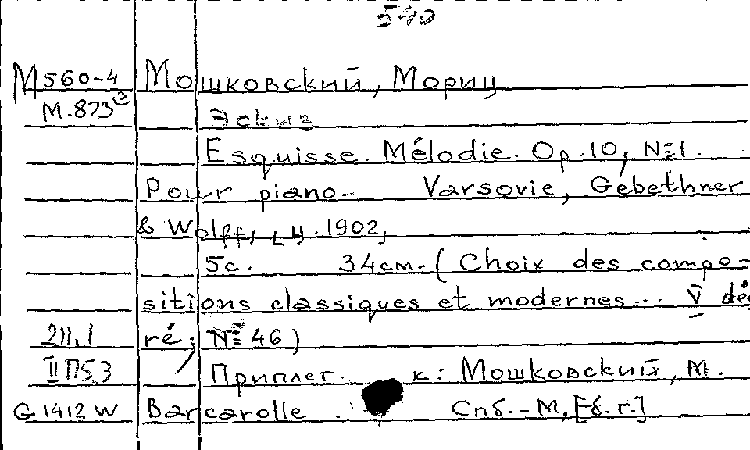 540
М560-4 Мошковский, Мориц
М.873 Эскиз
Esquisse. Mélodie. Op.10, №1.
Pour piano.. Varsovie, Gebethner
& Wolff, ц. 1902,
5с. 34см. (Choix des compo=
sitions classiques et modernes... V dég
2П.1 ré; № 46)
II П5.3 Приплет. к: Мошковский, М.
G 1412 W Barcarolle. Спб.-М, [б.г.]